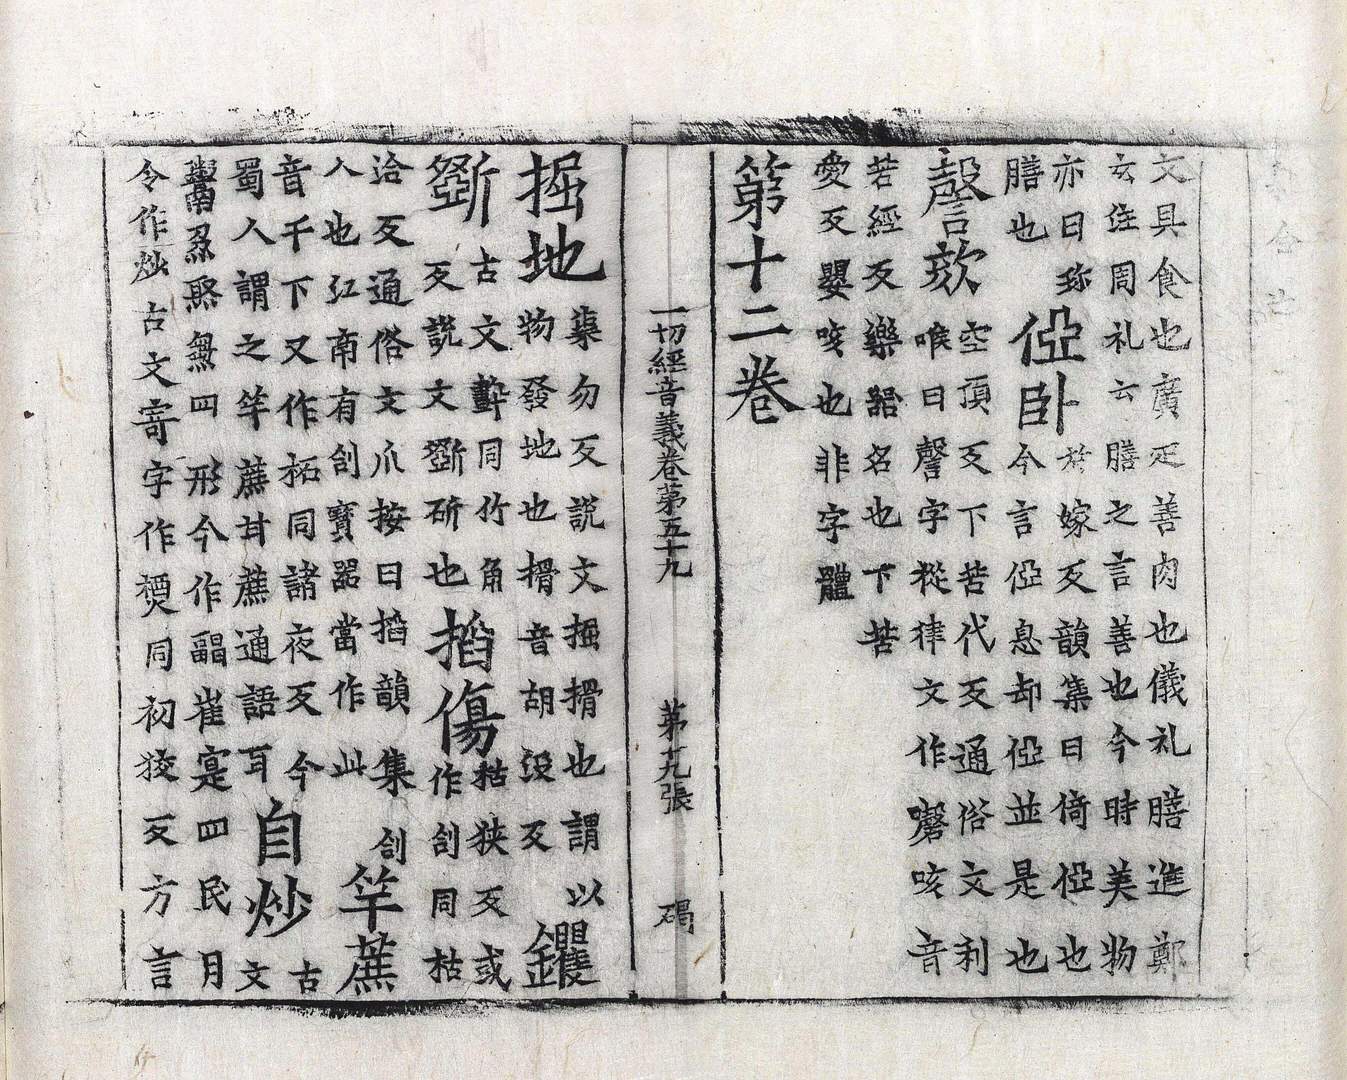 文具食也廣疋善肉也儀礼膳進鄭
玄注周礼云膳之言善也今時美物
亦曰珎
膳也
俹卧
於嫁反韻集曰倚俹也
今言俹息却俹並是也
謦欬
空頂反下苦代反通俗文利
喉曰謦字從律文作磬咳音
若經反樂器名也下苦
愛反嬰咳也非字體
第十二卷
一切經音義卷第五十九 第十九張 碣
掘地
渠勿反說文掘搰也謂以
物發地也搰音胡没反
钁
斲
古文同竹角
反說文斲斫也
掐傷
枯狹反或
作同枯
洽反通俗文爪按曰掐韻集
人也江南有寶器當作此
竿蔗
音千下又作柘同諸夜反今
蜀人謂之竿蔗甘蔗通語耳
自炒
古
文
四形今作崔寔四民月
令作炒古文寄字作同初狡反方言